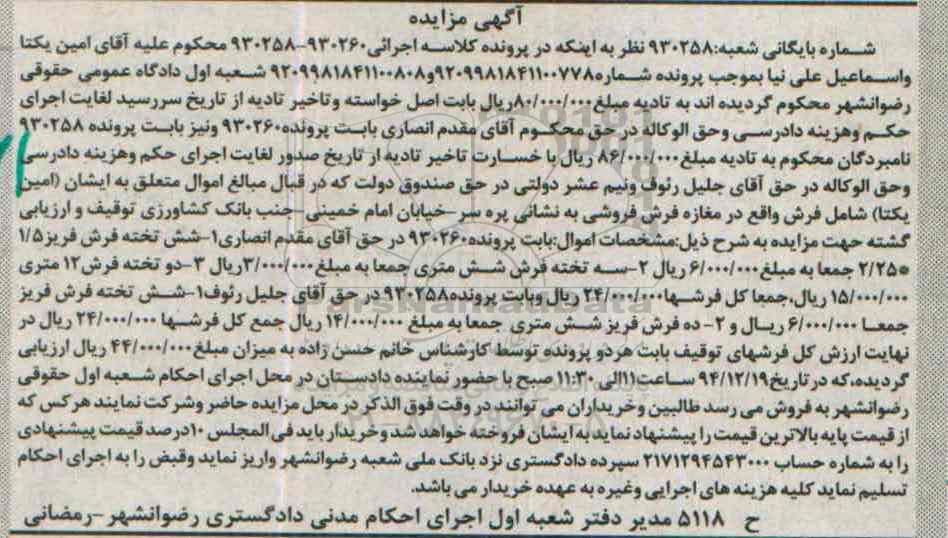 آگهی مزایده
شماره بایگانی شعبه:۹۳۰۲۵۸ نظر به اینکه در پرونده کلاسه اجرائی۹۳۰۲۶۰-۹۳۰۲۵۸ محکوم علیه آقای امین یکتا
واسماعیل علی نیا بموجب پرونده شماره۹۲۰۹۹۸۱۸۴۱۱۰۰۷۷۸و۹۲۰۹۹۸۱۸۴۱۱۰۰۸۰۸ شعبه اول دادگاه عمومی حقوقی
رضوانشهر محکوم گردیده اند به تادیه مبلغ۸۰/۰۰۰/۰۰۰ریال بابت اصل خواسته وتاخیر تادیه از تاریخ سررسید لغایت اجرای
حکم وهزینه دادرسی وحق الوکاله در حق محکوم آقای مقدم انصاری بابت پرونده۹۳۰۲۶۰ ونیز بابت پرونده ۹۳۰۲۵۸
نامبردگان محکوم به تادیه مبلغ۸۶/۰۰۰/۰۰۰ ریال با خسارت تاخیر تادیه از تاریخ صدور لغایت اجرای حکم وهزینه دادرسی
وحق الوکاله در حق آقای جلیل رئوف ونیم عشر دولتی در حق صندوق دولت که در قبال مبالغ اموال متعلق به ایشان (امین
یکتا) شامل فرش واقع در مغازه فرش فروشی به نشانی پره سر -خیابان امام خمینی-جنب بانک کشاورزی توقیف و ارزیابی
گشته حهت مزایده به شرح ذیل:مشخصات اموال:بابت پرونده۹۳۰۲۶۰ در حق آقای مقدم انصاری۱-شش تخته فرش فریز۱/۵
*۲/۲۵ جمعا به مبلغ۶/۰۰۰/۰۰۰ ریال ۲-سه تخته فرش شش متری جمعا به مبلغ۳/۰۰۰/۰۰۰ریال ۳-دو تخته فرش۱۲ متری
۱۵/۰۰۰/۰۰۰ ریال،جمعا کل فرشها۲۴/۰۰۰/۰۰۰ ریال وبابت پرونده۹۳۰۲۵۸ در حق آقای جلیل رئوف۱-شش تخته فرش فریز
جمعا ۶/۰۰۰/۰۰۰ ریال و ۲- ده فرش فریز شش متری جمعا به مبلغ ۱۴/۰۰۰/۰۰۰ ریال جمع کل فرشها ۲۴/۰۰۰/۰۰۰ ریال در
نهایت ارزش کل فرشهای توقیف بابت هر دو پرونده توسط کارشناس خانم حسن زاده به میزان مبلغ۴۴/۰۰۰/۰۰۰ ریال ارزیابی
گردیده،که در تاریخ۹۴/۱۲/۱۹ ساعت۱۱الی ۱۱:۳۰ صبح با حضور نماینده دادستان در محل اجرای احکام شعبه اول حقوقی
رضوانشهر به فروش می رسد طالبین وخریداران می توانند در وقت فوق الذکر در محل مزایده حاضر وشرکت نمایند هرکس که
از قیمت پایه بالاترین قیمت را پیشنهاد نماید به ایشان فروخته خواهد شد وخریدار باید فی المجلس ۱۰درصد قیمت پیشنهادی
را به شماره حساب ۲۱۷۱۲۹۴۵۴۳۰۰۰ سپرده دادگستری نزد بانک ملی شعبه رضوانشهر واریز نماید وقبض را به اجرای احکام
تسلیم نماید کلیه هزینه های اجرایی وغیره به عهده خریدار می باشد.
ح ۵۱۱۸ مدیر دفتر شعبه اول اجرای احکام مدنی دادگستری رضوانشهر -رمضانی